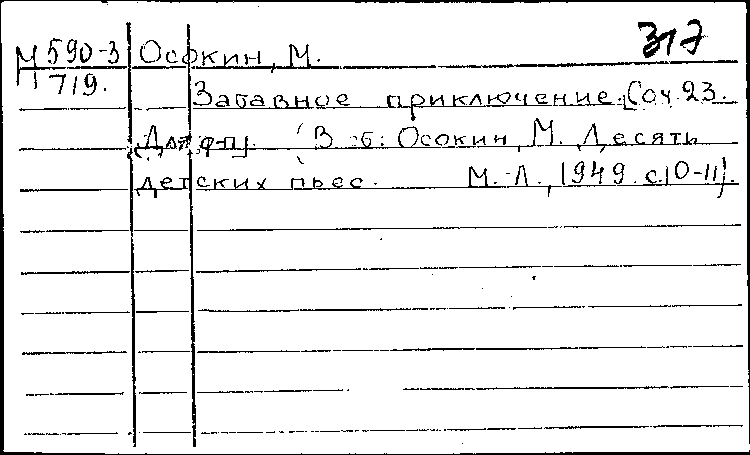 М 590-3 Осокин, М. 317
719.
Забавное приключение. Соч. 23.
Для ф-п. (В сб: Осокин, М. Десять
детских пьес. М.-Л., 1949. с.10-11).